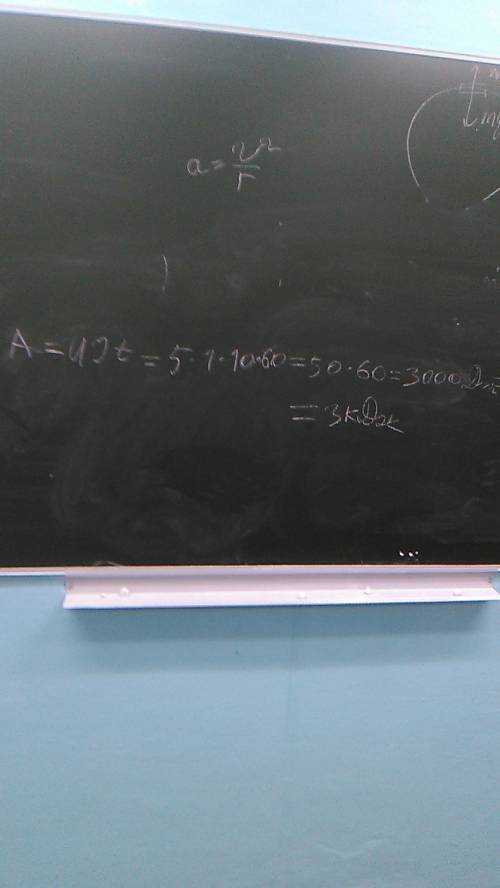 a = v²/r
mg
A = UIt = 5·1·10·60 = 50·60 = 3000 Дж
= 3 кДж